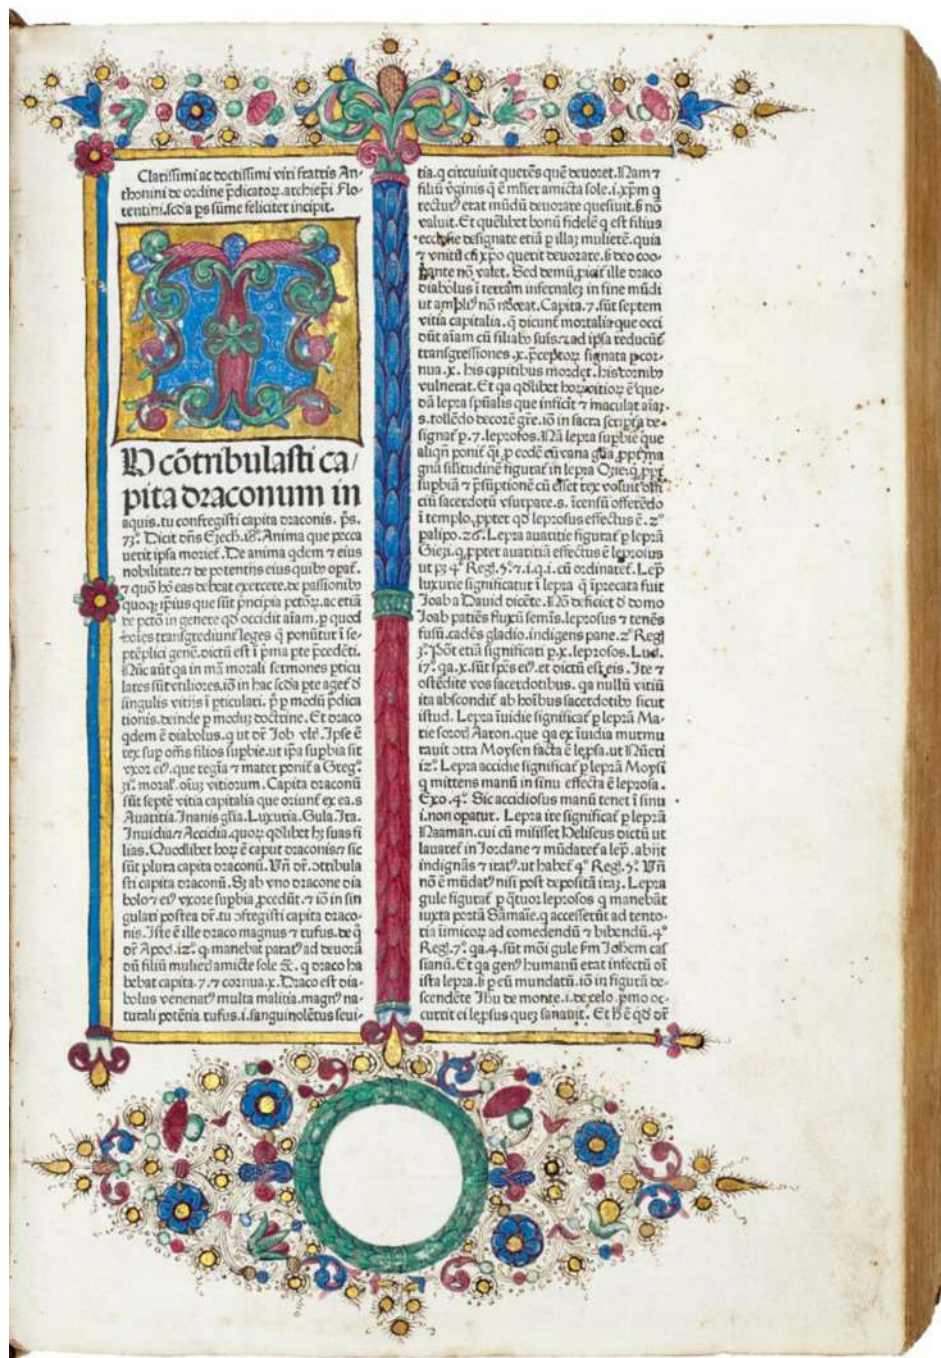 Clarissimi ac doctissimi viri fratris An-
thonini de ordine p̄dicatoꝝ. archiep̄i Flo-
rentini. scd̄a ps sūme feliciter incipit.
TV cōtribulasti ca/
pita draconum in
aquis. tu confregisti capita draconis. p̄s.
73. Dicit dn̄s Ezech. 18. Anima que pecca
uerit ipsa morieť. De anima qdem ⁊ eius
nobilitate. ⁊ de potentijs eius quibꝰ opať.
⁊ quō hō eas debeat exercere. de passionibꝰ
quoqꝫ ip̄ius que sūt pncipia pctōꝝ. ac etiā
de pctō in genere qd̓ occidit aīam. p quod
hoīes transgrediunť leges q̄ ponūtur ī se-
ptēplici gene. dictū est ī pma pte p̄cedēti.
Nūc aūt qa in mā morali sermones pticu
lares sūt vtiliores. iō in hac scd̄a pte ageť d̓
singulis vitijs ī pticulari. p̄ p modū p̄dica
tionis. deinde p modū doctrine. Et draco
qdem ē diabolus. q ut dr̄ Job vlť. Ipse ē
rex sup om̄s filios supbie. ut ip̄a supbia sit
vxor eiꝰ. que regīa ⁊ mater poniť a Greg.
31. moral. oīuꝫ vitiorum. Capita draconū
sūt septē vitia capitalia que oriunť ex ea. s
Auaritia. Inanis gl̄ia. Luxuria. Gula. Ira.
Inuidia ⁊ Accidia. quoꝝ qd̓libet hꝫ suas fi
lias. Quodlibet hoꝝ ē caput draconis ⁊ sic
sūt plura capita draconū. Vn̄ dr̄. ↄtribula
sti capita draconū. Sꝫ ab vno dracone dia
bolo ⁊ eiꝰ vxore supbia pcedūt. ⁊ iō in sin
gulari postea dr̄. tu ↄfregisti capita draco-
nis. Iste ē ille draco magnus ⁊ rufus. de q̊
dr̄ Apoc. 12. q manebat paratꝰ ad deuorā
dū filiū mulieris amicte sole ⁊c̄. q draco ha
bebat capita. 7. ⁊ cornua. x. Draco est dia-
bolus venenatꝰ multa malitia. magnꝰ na-
turali potētia rufus. i. sanguinolētus seui-
tia. q circuiuit querēs quē deuoret. Nam ⁊
filiū v̓ginis q̄ ē mlier amicta sole. i. xp̄m q
recturꝰ erat mūdū deuorare quesiuit. sꝫ nō
valuit. Et quēlibet bonū fidelē q est filius
ecclesie designate etiā p illaꝫ mulierē. quia
⁊ vnitū cū xp̄o querit deuorare. sꝫ deo coo-
pante nō valet. Sed demū piicieť ille draco
diabolus ī terram infernaleꝫ in fine mūdi
ut ampliꝰ nō noceat. Capita. 7. sūt septem
vitia capitalia. q̄ dicunť mortalia que occi
dūt aīam cū filiabꝰ suis. ⁊ ad ip̄sa reducūť
transgressiones. x. p̄ceptoꝝ signata p cor-
nua. x. his capitibus mordet. his cornibꝰ
vulnerat. Et qa qd̓libet hoꝝ vitioꝝ ē que-
dā lepra sp̄ualis que inficit ⁊ maculat aīaꝫ.
s. tollēdo decorē gr̄e. iō in sacra scriptura de-
signať p. 7. leprosos. Nā lepra supbie que
aliqn̄ poniť qi p eodē cū vana gl̄ia ppť ma
gnā silitudinē figurať in lepra Ozie. q ppť
supbiā ⁊ p̄suptionē cū esset rex voluit offi
ciū sacerdotū vsurpare. s. īcensū offerēdo
ī templo. ppter qd̓ leprosus effectus ē. 2
palipo. 26. Lepra auaritie figurať p leprā
Giezi. q ppter auaritiā effectus ē leprosus
ut pꝫ 4 Regl. 5. ⁊. i. q. i. cū ordinareť. Lep̄
luxurie significatur ī lepra q̄ īprecata fuit
Joab a Dauid dicēte. Nō deficiet d̓ domo
Joab patiēs fluxū semīs. leprosus ⁊ tenēs
fusū. cadēs gladio. indigens pane. 2 Regl
3. Pōt etiā significari p. x. leprosos. Luc.
17. qa. x. sūt sp̄es eiꝰ. et dictū est eis. Ite ⁊
ostēdite vos sacerdotibus. qa nullū vitiū
ita abscondiť ab hoībus sacerdotibꝰ sicut
istud. Lepra īuidie significať p leprā Ma-
rie soroꝭ Aaron. que qa ex īuidia murmu
rauit ↄtra Moysen facta ē lep̄sa. ut Nūeri
12. Lepra accidie significať p leprā Moysi
q mittens manū in sinu effecta ē leprosa.
Exo. 4. Sic accidiosus manū tenet ī sinu
i. non opatur. Lepra ire significať p leprā
Naaman. cui cū misisset Heliseus dictū ut
lauareť in Iordane ⁊ mūdareť a lep̄. abijt
indignās ⁊ iratꝰ. ut habeť 4 Regl. 5. Vn̄
nō ē mūdatꝰ nisi post depositā iraꝫ. Lepra
gule figurať p qtuor leprosos q manebāt
iuxta portā Samarie. q accesserūt ad tento-
ria īimicoꝝ ad comedendū ⁊ bibendū. 4
Regl. 7. qa. 4. sūt mōi gule fm Johem cas
sianū. Et qa genꝰ humanū erat infectū oī
ista lepra. sꝫ p eū mundatū. iō in figurā de-
scendēte Ihu de monte. i. de celo. pmo oc-
currit ei lep̄sus queꝫ sanauit. Et h̄ ē qd̓ dr̄